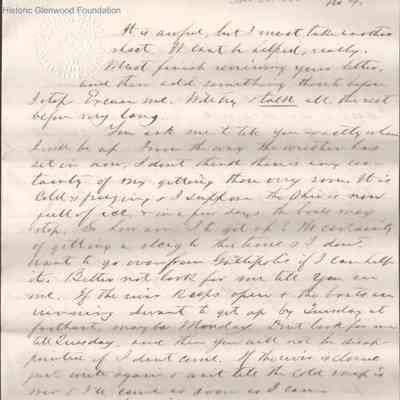 Historic Glenwood Foundation
No 4.
It is awful, but I must take another
sheet. It cant be helped, really.
Must finish reviewing your letter,
and then add something more before
I stop. Excuse me. Will try & talk all the rest
before very long
You ask me to tell you exactly when
I will be up. From the way the weather has
set in now, I dont think there is any cer-
tainty of my getting there very soon. It is
Cold & freezing & I suppose the Ohio is now
full of ice, & in a few days the boats may
stop. So how am I to get up? No certainty
of getting a sleigh there & I don't
want to go over from Gallipolis if I can help
it. Better not look for me till you see
me. If the river keeps open & the boats are
running I want to get up by Tuesday at
farthest, may be Monday. Dont look for me
till Tuesday, and then you will not be disap-
pointed if I dont come. If the river is closed
just write again & wait till the cold snap is
over & I'll come as soon as I can.